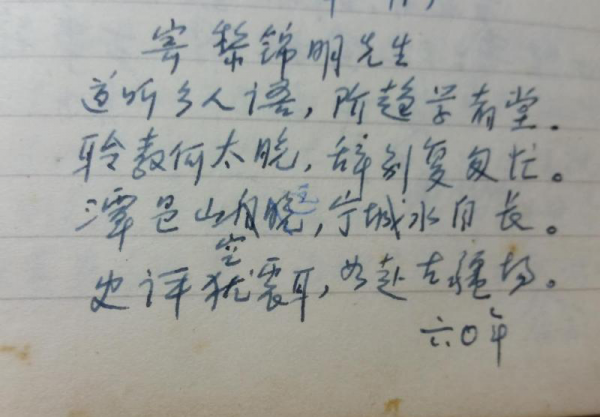 寄黎锦明先生
道听乡人语，阶趋学者堂。
聆教何太晚，辞别复匆忙。
潭邑山月晓，宁城水自长。
空
史评犹震耳，如赴古疆场。
六〇年